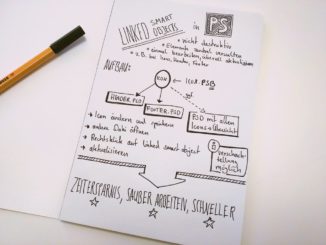 LINKED SMART OBJECTS in PS
• nicht destruktiv
• Elemente zentral verwalten
• einmal bearbeiten, überall aktualisieren
• z.B. bei Icons, Header, Footer
AUFBAU:
ICON ← ICON.PSB
HEADER.PSD
FOOTER.PSD
ggf.
PSD mit allen Icons
→ Icon ändern und speichern
→ andere Datei öffnen
→ Rechtsklick auf Linked smart object
→ aktualisieren
verschachtelung möglich
ZEITERSPARNIS, SAUBER ARBEITEN, SCHNELLER